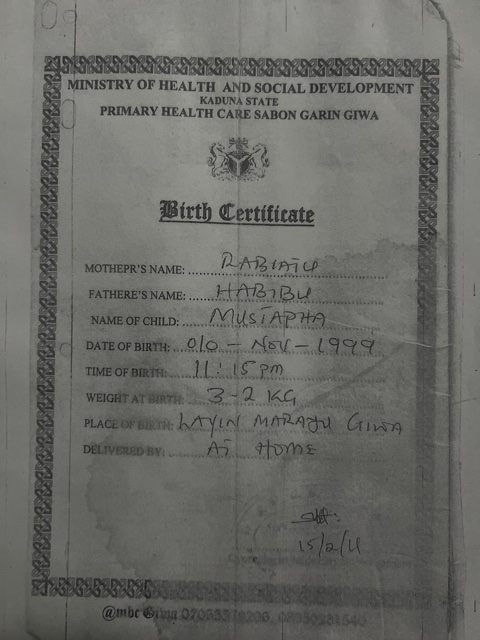 MINISTRY OF HEALTH AND SOCIAL DEVELOPMENT
KADUNA STATE
PRIMARY HEALTH CARE SABON GARIN GIWA
Birth Certificate
MOTHEPR'S NAME: RABIATU
FATHERE'S NAME: HABIBU
NAME OF CHILD: MUSTAPHA
DATE OF BIRTH: 010 - NOV - 1999
TIME OF BIRTH: 11:15 PM
WEIGHT AT BIRTH: 3-2 KG
PLACE OF BIRTH: LAYIN GIWA
DELIVERED BY: AT HOME
15/2/11
@mbc Giwa